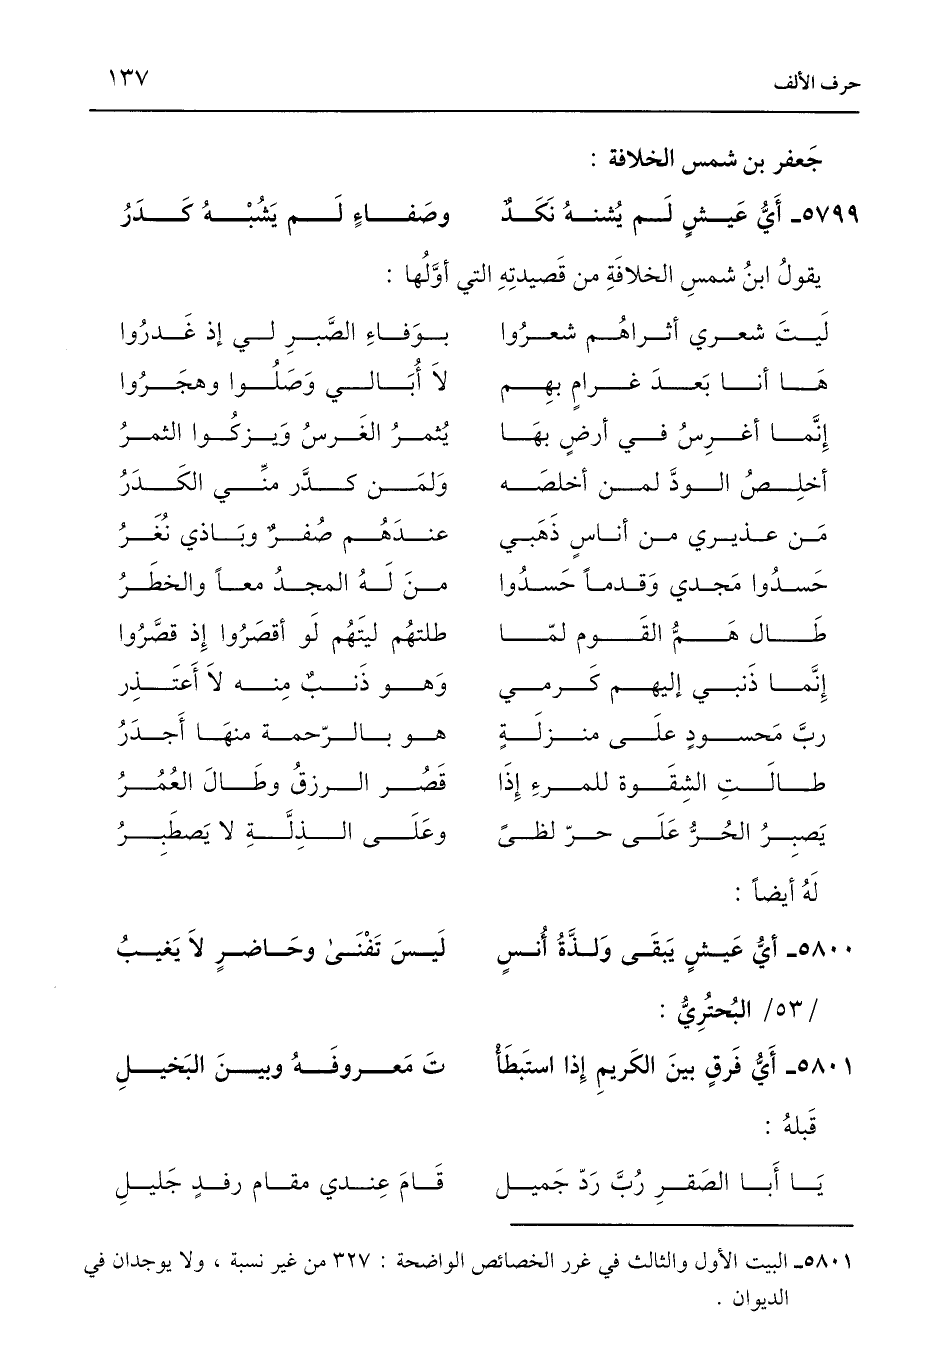 حرف الألف ١٣٧
جَعفر بن شمس الخلافة :
٥٧٩٩ـ أَيُّ عَيشٍ لَم يُشنهُ نَكَدٌ وصَفاءٍ لَم يَشُبْهُ كَدَرُ
يقولُ ابنُ شمسِ الخلافَةِ من قَصيدتِهِ التي أوَّلُها :
لَيتَ شعري أتراهُم شعرُوا بوَفاءِ الصَّبرِ لي إذ غَدرُوا
هَا أنا بَعدَ غرامٍ بهم لاَ أُبَالي وَصَلُوا وهجَرُوا
إنَّما أغرسُ في أرضٍ بهَا يُثمرُ الغَرسُ وَيزكُوا الثمرُ
أخلصُ الودَّ لمن أخلصَه وَلمَن كدَّر منِّي الكَدَرُ
مَن عذيري من أناسٍ ذَهَبي عندَهُم صُفرٌ وبَاذي نُغَرُ
حَسدُوا مَجدي وَقدماً حَسدُوا مَن لَهُ المجدُ معاً والخطَرُ
طَال هَمُّ القَوم لمّا طلتهُم ليتَهُم لَو أقصَرُوا إذ قصَّرُوا
إنَّما ذَنبي إليهم كَرمي وَهو ذَنبٌ مِنه لاَ أَعتَذر
ربَّ مَحسودٍ علَى منزلَةٍ هو بالرّحمة منهَا أجدَرُ
طالَتِ الشقوة للمرءِ إذَا قصُر الرزقُ وطَالَ العُمُرُ
يَصبِرُ الحُرُّ علَى حرّ لظىً وعَلَى الذلَّةِ لا يَصطَبِرُ
لَهُ أيضاً :
٥٨٠٠ـ أيُّ عَيشٍ يَبقَى وَلذَّةُ أُنسٍ لَيسَ تَفْنَىٰ وحَاضرٍ لاَ يَغيبُ
/٥٣/ البُحتُرِيُّ :
٥٨٠١ـ أَيُّ فَرقٍ بينَ الكَريمِ إذا استَبطَأْ تَ مَعروفَهُ وبينَ البَخيلِ
قَبلهُ :
يَا أبا الصَقرِ رُبَّ رَدّ جَميلٍ قَامَ عِندي مقام رفدٍ جَليلِ
٥٨٠١ـ البيت الأول والثالث في غرر الخصائص الواضحة : ٣٢٧ من غير نسبة ، ولا يوجدان في
الديوان .